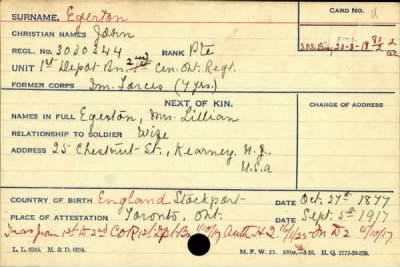 CARD NO.
SURNAME. Egerton
CHRISTIAN NAMES John
REGL. NO. 3030344 RANK Pte.
UNIT 1st Depot Bn. 2nd 1st Cen. Ont. Regt.
FORMER CORPS Im. Forces (7 yrs.)
NEXT OF KIN. CHANGE OF ADDRESS
NAMES IN FULL Egerton, Mrs. Lillian
RELATIONSHIP TO SOLDIER Wife
ADDRESS 25 Chestnut St., Kearney, N.J.
U.S.A
COUNTRY OF BIRTH England Stockport DATE Oct. 27th 1877
PLACE OF ATTESTATION Toronto, Ont. DATE Sept. 5th 1917
Trans from 1st to 2nd C.O.R. Auth. H.Q.
L.L. M. & D. M.F.W. 22. H.Q. 1772-39-339.